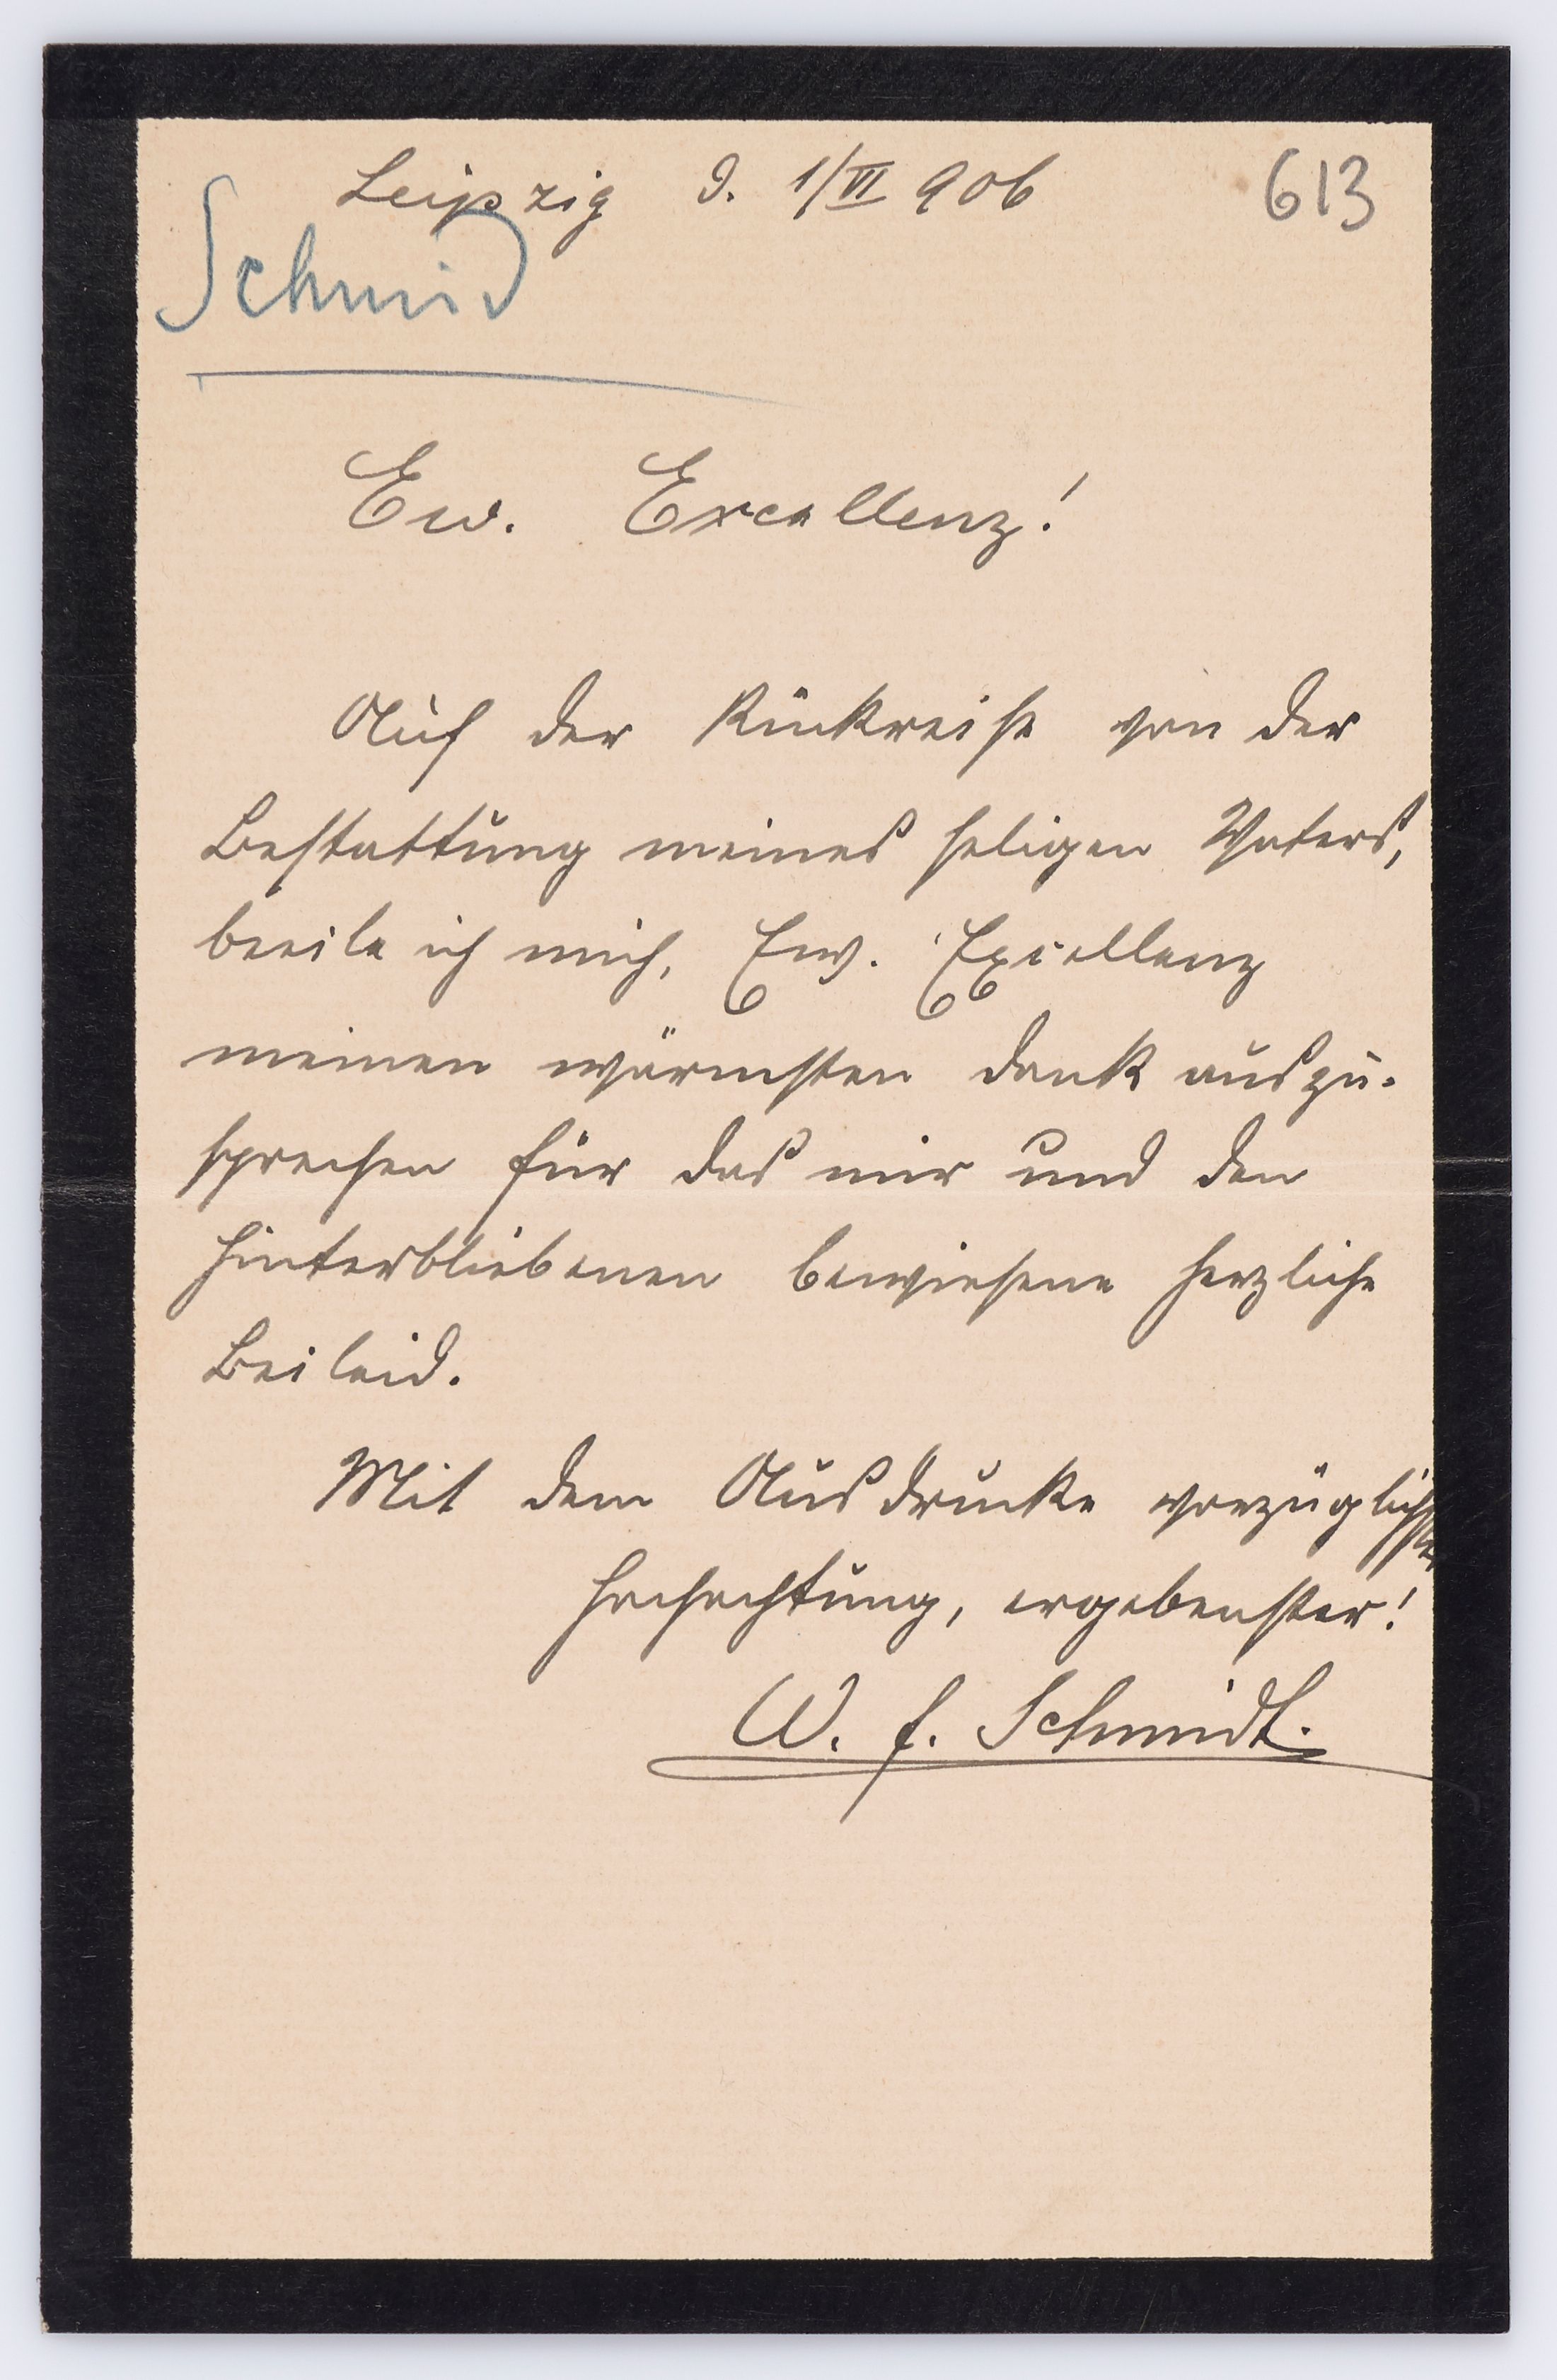 Leipzig d. 1/VI 906
613
Schmid
Ew. Excellenz!
Auf der Rückreise von der
Bestattung meines seligen Vaters,
beeile ich mich, Ew. Excellenz
meinen wärmsten Dank auszu-
sprechen für das mir und den
Hinterbliebenen bewiesene herzliche
Beileid.
Mit dem Ausdrucke vorzüglichster
Hochachtung, ergebenster!
W. f. Schmidt.